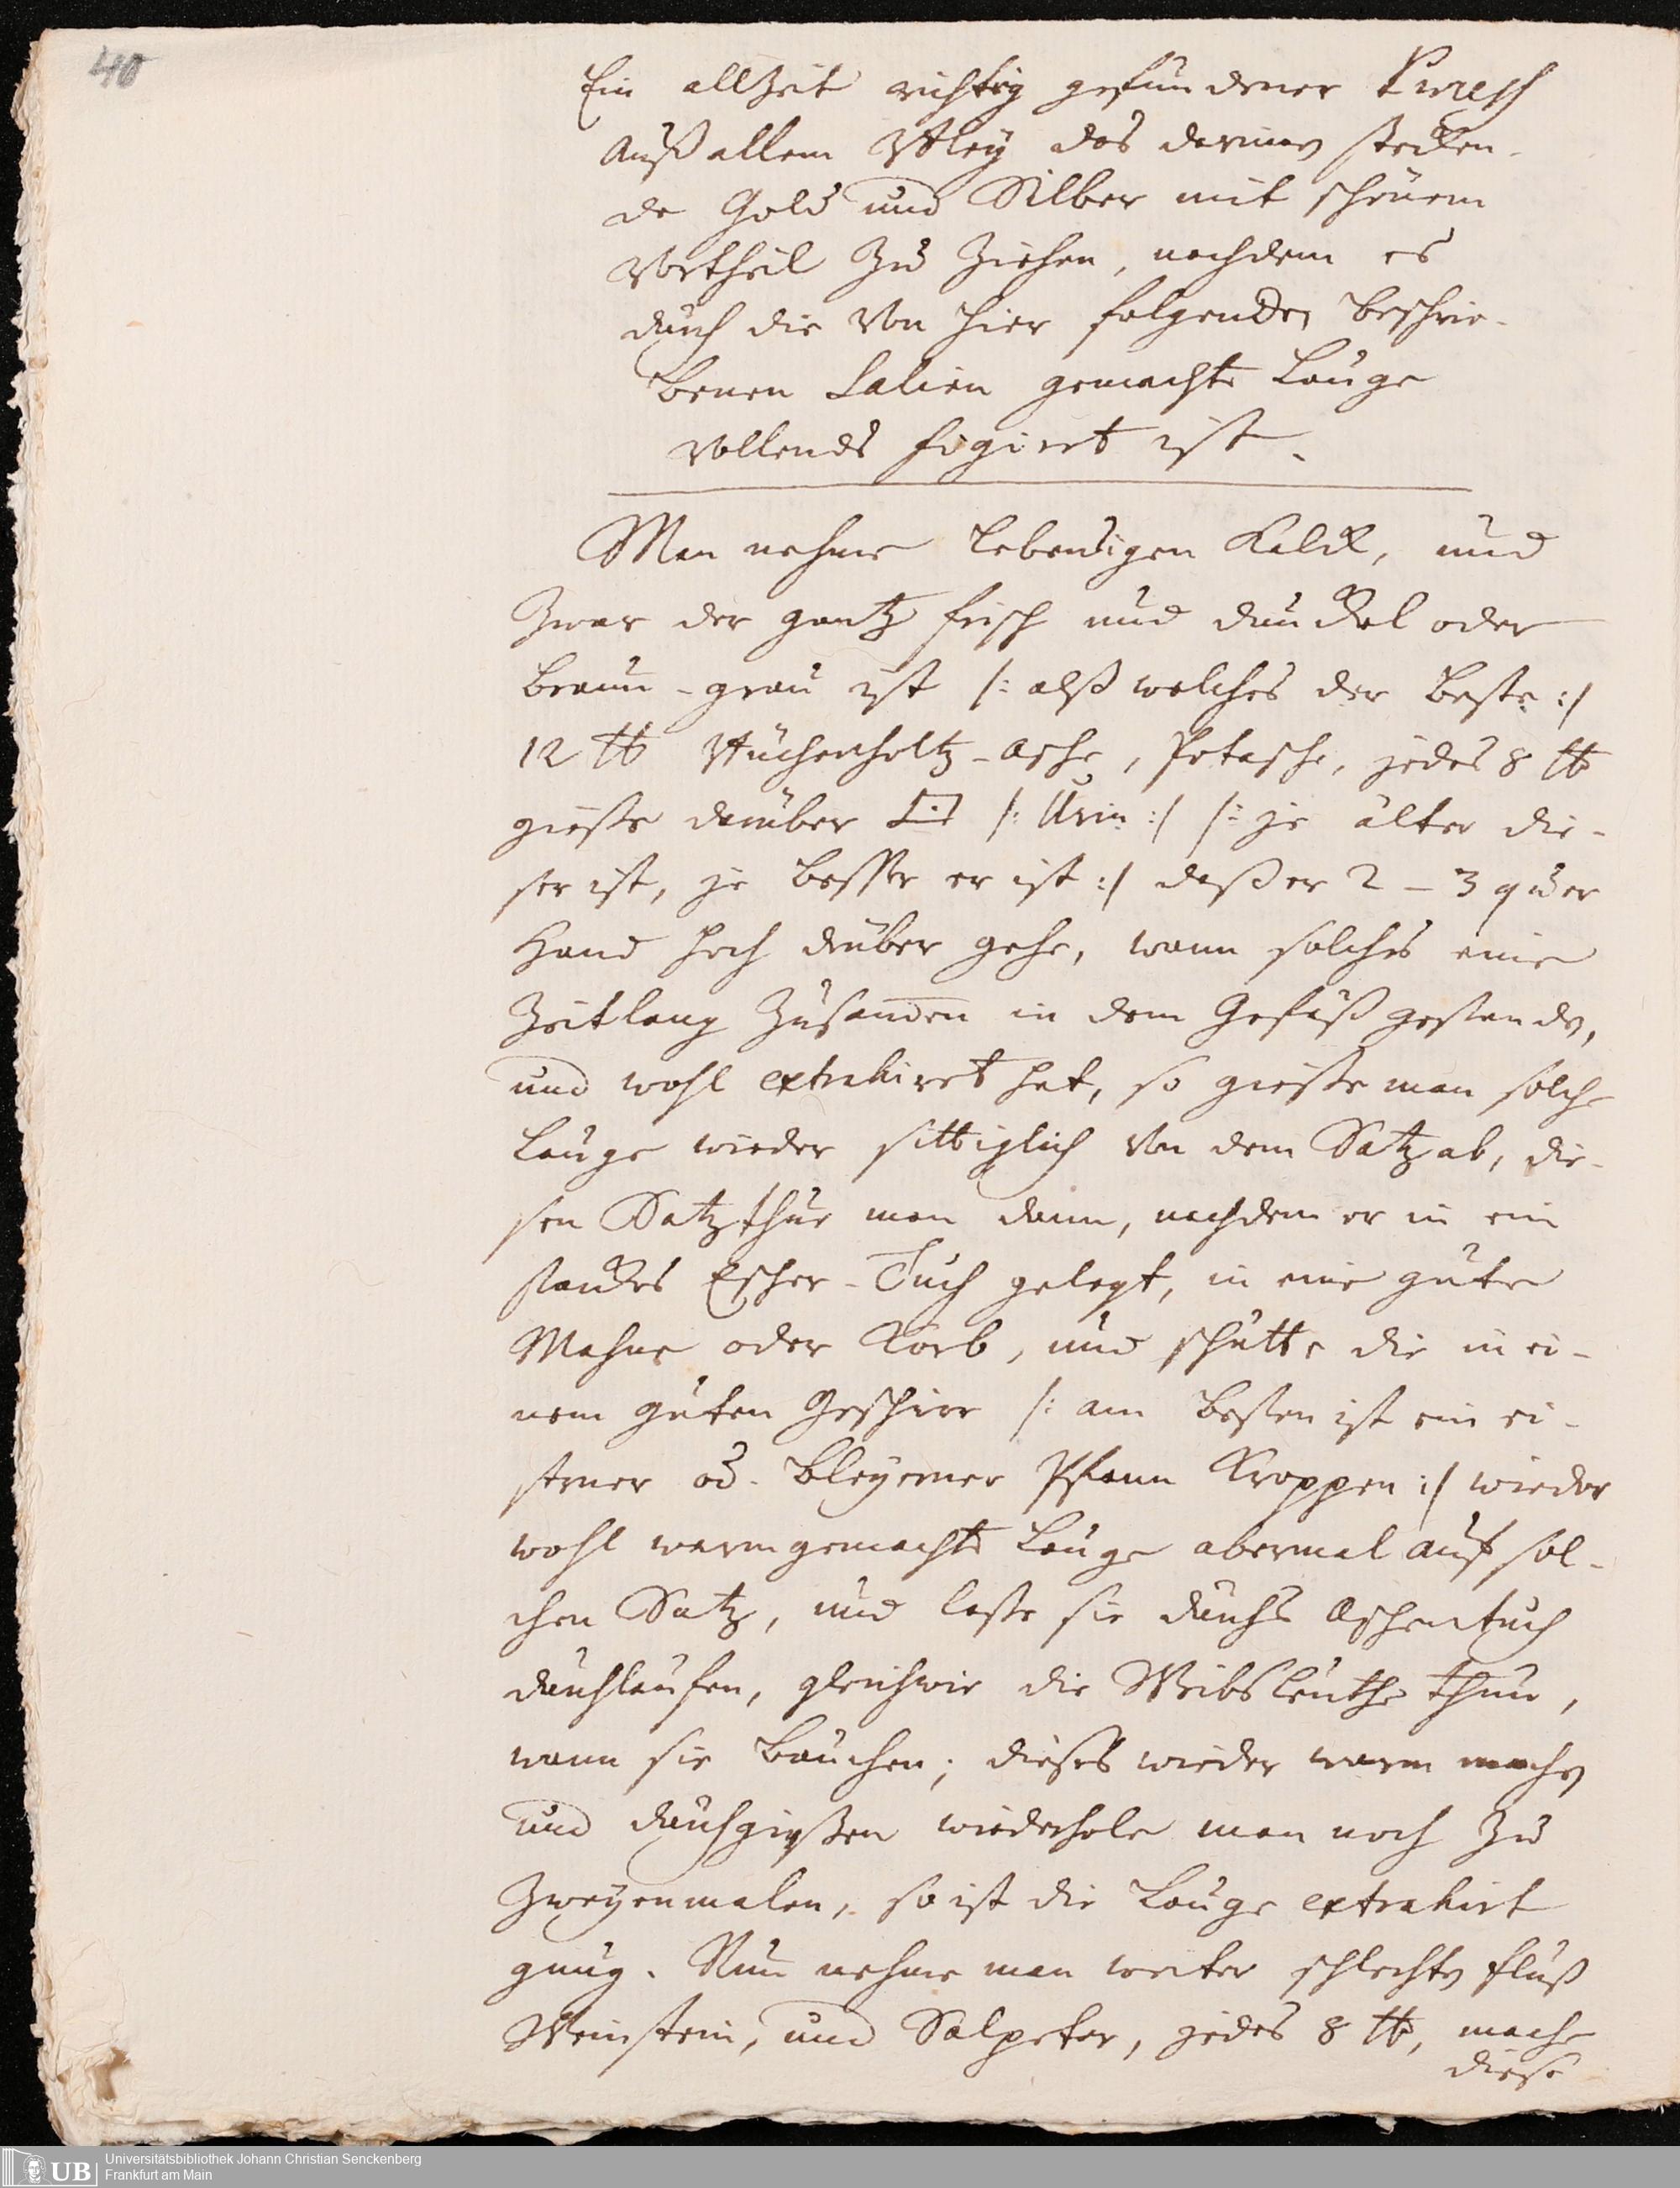 40
Ein allzeit richtig gefundener Proceß
Auß allem Bley das darinnen stecken-
de Gold und Silber mit schönem
Vortheil zu ziehen, nachdem es
durch die von hier folgenden beschrie-
benen Salien gemachte Lauge
vollends figiret ist.
Man nehme lebendigen Kalck, und
zwar der gantz frisch und dunckel oder
braun-grau ist /: alß welches der beste :/
12 ℔ Büchenholtz-Asche, Potasche, jedes 8 ℔
gieße darüber /: Urin :/ /: je älter die-
ser ist, je besser er ist :/ daß er 2 – 3 quer
Hand hoch drüber gehe, wann solches eine
Zeitlang zusammen in dem Gefäß gestanden,
und wohl extrahiret hat, so gieße man solche
Lauge wieder sittiglich von dem Satz ab, die-
sen Satz thue man dann, nachdem er in ein
starckes Escher-Tuch gelegt, in eine gute
Mahne oder Korb, und schütte die in ei-
nem guten Geschirr /: am besten ist ein ei-
serner od. bleyerner Pfann Kroppen :/ wieder
wohl warm gemachte Lauge abermal auf sol-
chen Satz, und laße sie durchs Aschentuch
durchlaufen, gleichwie die Weibsleuthe thun,
wann sie bauchen; dieses wieder warm machen
und durchgießen wiederhole man noch zu
zweyenmalen, so ist die Lauge extrahirt
gnug. Nun nehme man weiter schlechten Fluß
Weinstein, und Salpeter, jedes 8 ℔, mache
diese
UB Universitätsbibliothek Johann Christian Senckenberg
Frankfurt am Main